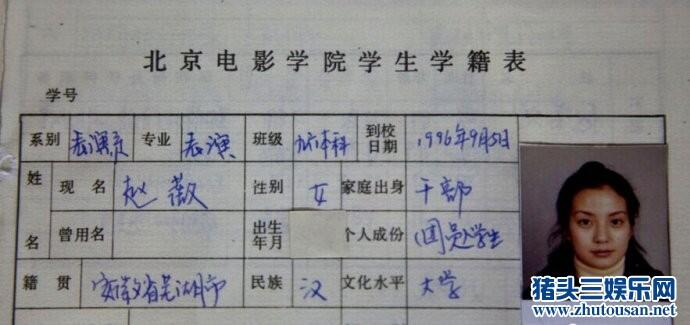 北京电影学院学生学籍表
学号
系别 表演系 专业 表演 班级 96本科 到校日期 1996年9月5日
姓名 现名 赵薇 性别 女 家庭出身 干部
曾用名 出生年月 个人成份 (团员)学生
籍贯 安徽省芜湖市 民族 汉 文化水平 大学
猪头三娱乐网
www.zhutousan.net